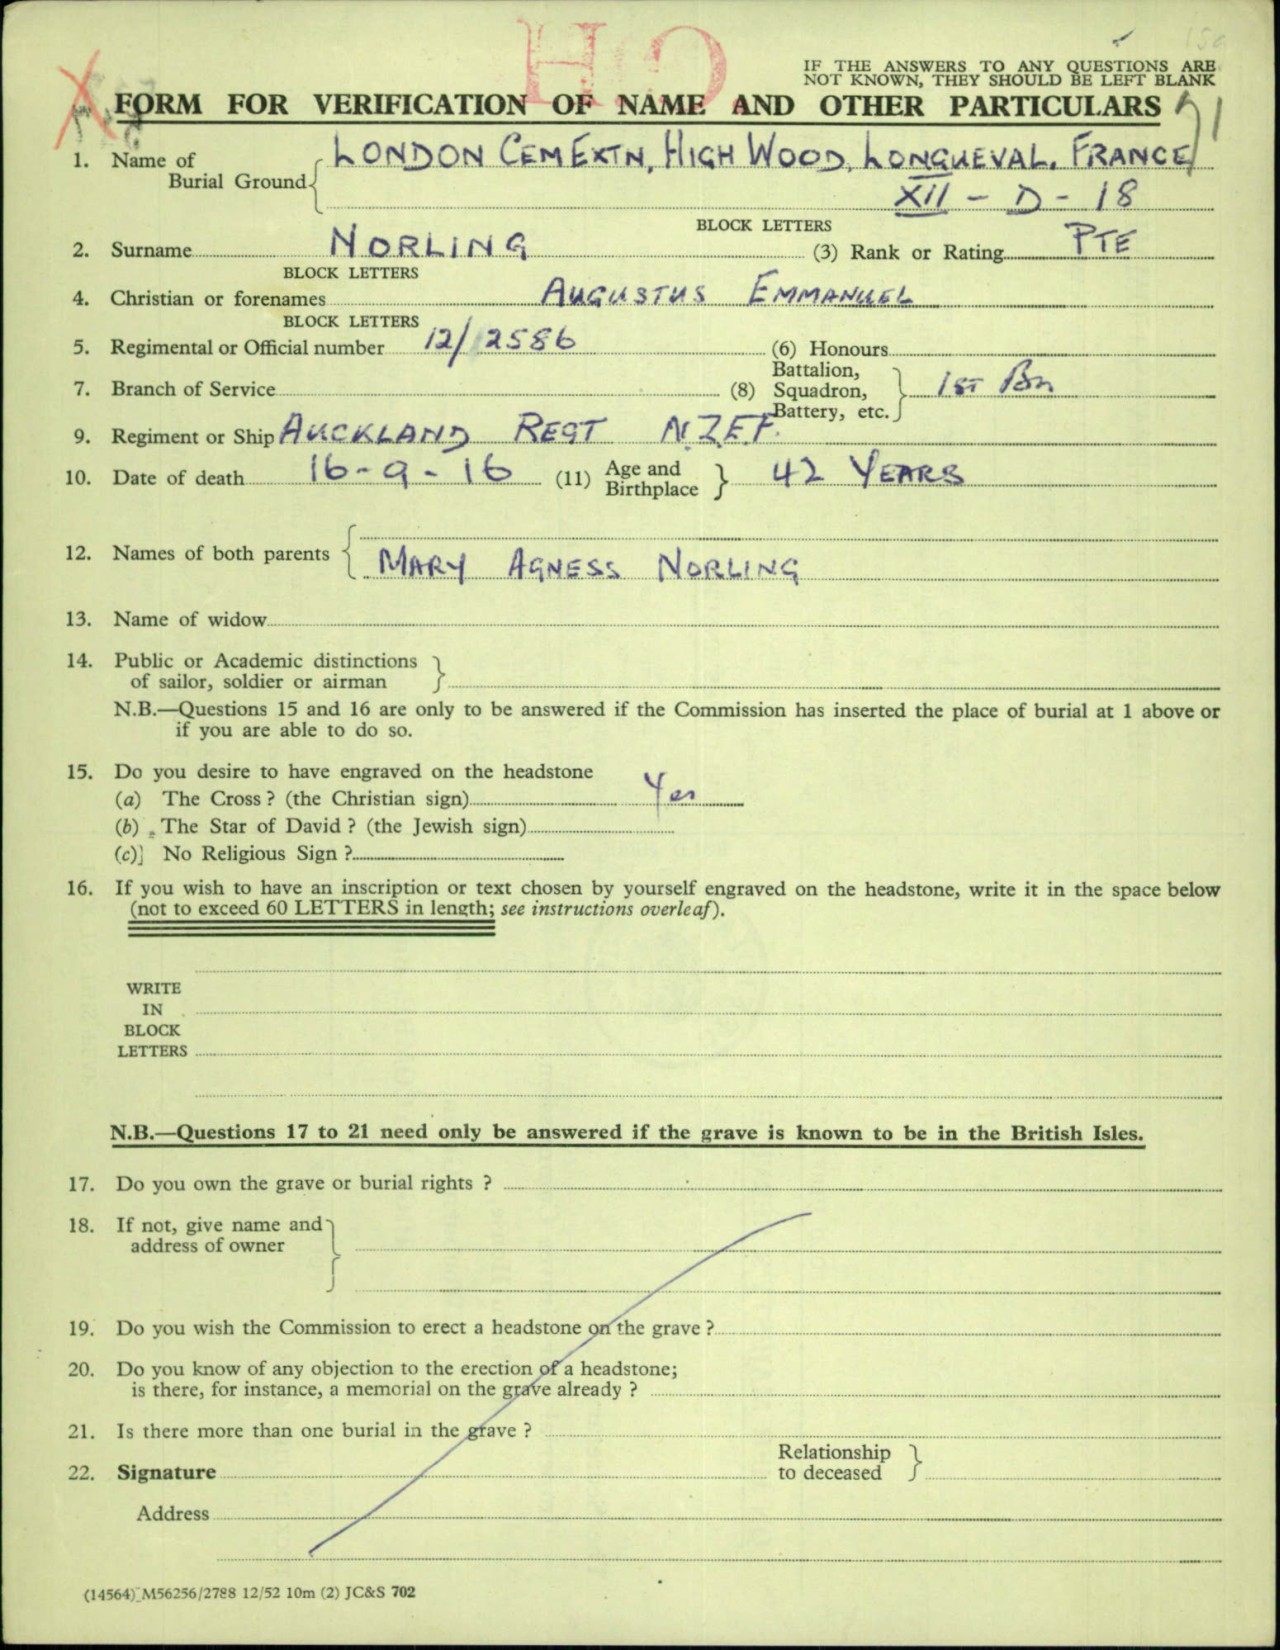 IF THE ANSWERS TO ANY QUESTIONS ARE
NOT KNOWN, THEY SHOULD BE LEFT BLANK
FORM FOR VERIFICATION OF NAME AND OTHER PARTICULARS
1. Name of Burial Ground LONDON CEM EXTN, HIGH WOOD, LONGUEVAL. FRANCE
XII - D - 18
BLOCK LETTERS
2. Surname NORLING (3) Rank or Rating PTE
BLOCK LETTERS
4. Christian or forenames AUGUSTUS EMMANUEL
BLOCK LETTERS
5. Regimental or Official number 12/2586 (6) Honours
7. Branch of Service (8) Battalion, Squadron, Battery, etc. 1ST Bn
9. Regiment or Ship AUCKLAND REGT N.Z.E.F.
10. Date of death 16-9-16 (11) Age and Birthplace 42 YEARS
12. Names of both parents
MARY AGNESS NORLING
13. Name of widow
14. Public or Academic distinctions
of sailor, soldier or airman
N.B.—Questions 15 and 16 are only to be answered if the Commission has inserted the place of burial at 1 above or
if you are able to do so.
15. Do you desire to have engraved on the headstone
(a) The Cross? (the Christian sign) Yes
(b) The Star of David? (the Jewish sign)
(c) No Religious Sign?
16. If you wish to have an inscription or text chosen by yourself engraved on the headstone, write it in the space below
(not to exceed 60 LETTERS in length; see instructions overleaf).
WRITE
IN
BLOCK
LETTERS
N.B.—Questions 17 to 21 need only be answered if the grave is known to be in the British Isles.
17. Do you own the grave or burial rights ?
18. If not, give name and
address of owner
19. Do you wish the Commission to erect a headstone on the grave ?
20. Do you know of any objection to the erection of a headstone;
is there, for instance, a memorial on the grave already ?
21. Is there more than one burial in the grave ?
22. Signature Relationship to deceased
Address
(14564) M56256/2788 12/52 10m (2) JC&S 702